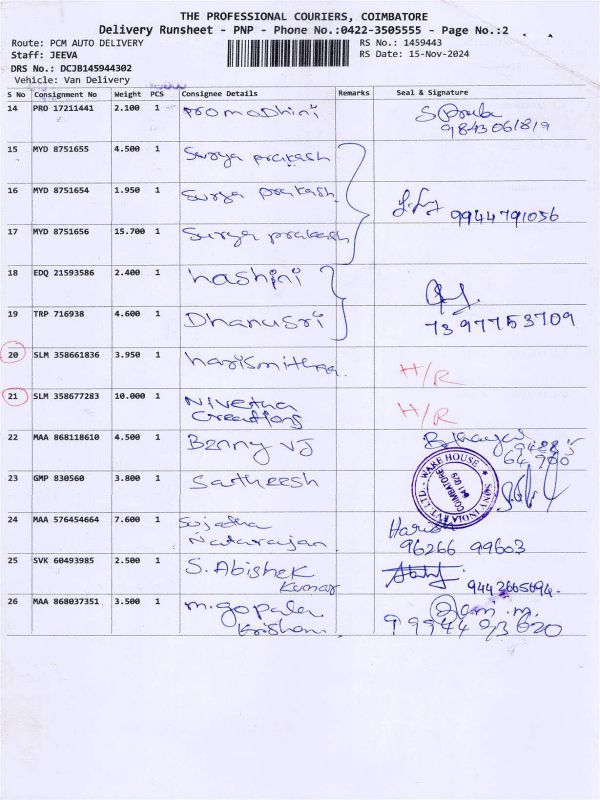 THE PROFESSIONAL COURIERS, COIMBATORE
Delivery Runsheet - PNP - Phone No.:0422-3505555 - Page No.:2
Route: PCM AUTO DELIVERY RS No.: 1459443
Staff: JEEVA RS Date: 15-Nov-2024
DRS No.: DCJB145944302
Vehicle: Van Delivery
S No Consignment No Weight PCS Consignee Details Remarks Seal & Signature
14 PRO 17211441 2.100 1 Promodhini
9843061819
15 MYD 8751655 4.500 1 Surya prakash
16 MYD 8751654 1.950 1 Surya prakash
9944791056
17 MYD 8751656 15.700 1 Surya prakash
18 EDQ 21593586 2.400 1 hashini
19 TRP 716938 4.600 1 Dhanusri
7397753709
20 SLM 358661836 3.950 1 H/R
21 SLM 358677283 10.000 1 Nivetha H/R
Creations
22 MAA 868118610 4.500 1 Benny VJ
23 GMP 830560 3.800 1 Sartheesh
SONY INDIA PVT LTD. - WARE HOUSE
COIMBATORE
641 029
24 MAA 576454664 7.600 1 Sujatha
Natarajan
96266 99603
25 SVK 60493985 2.500 1 S. Abishek
Kumar
9442665694.
26 MAA 868037351 3.500 1 M. gopala
Krishnan